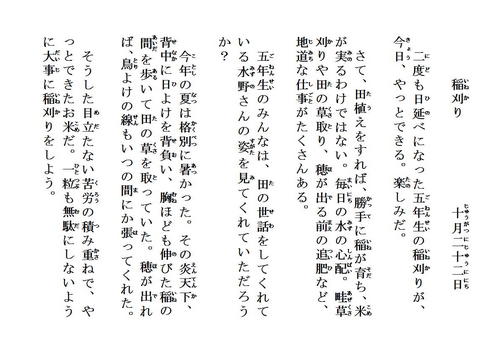 稲刈り　十月二十二日
二度も日延べになった五年生の稲刈りが、
今日、やっとできる。楽しみだ。
さて、田植えをすれば、勝手に稲が育ち、米
が実るわけではない。毎日の水の心配。畦草
刈りや田の草取り、穂が出る前の追肥など、
地道な仕事がたくさんある。
五年生のみんなは、田の世話をしてくれて
いる水野さんの姿を見てくれていただろう
か？
今年の夏は格別に暑かった。その炎天下、
背中に日よけを背負い、胸ほども伸びた稲の
間を歩いて田の草を取っていた。穂が出れ
ば、鳥よけの線もいつの間にか張ってくれた。
そうした目立たない苦労の積み重ねで、や
っとできたお米だ。一粒も無駄にしないよう
に大事に稲刈りをしよう。